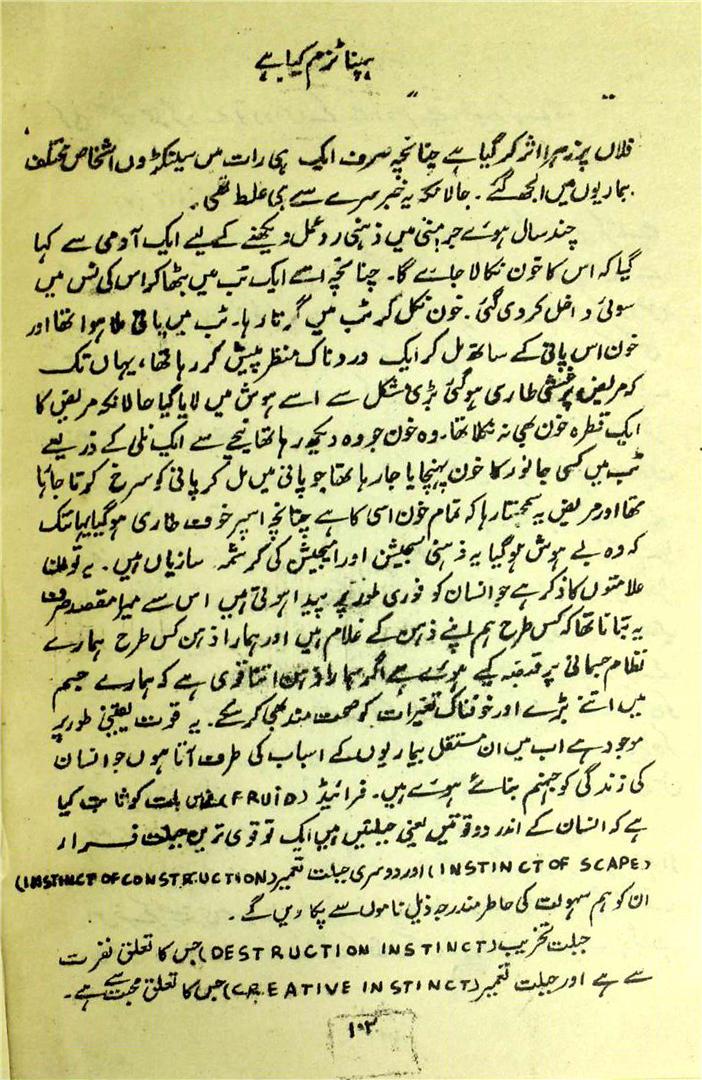 ہپناٹزم کیا ہے
فلاں پر زہر اثر کر گیا ہے چنانچہ صرف ایک ہی رات میں سینکڑوں اشخاص مختلف
بیماریوں میں الجھ گئے ۔ حالانکہ یہ خبر سرے سے ہی غلط تھی ۔
چند سال ہوئے جرمنی میں ذہنی ردعمل دیکھنے کے لیے ایک آدمی سے کہا
گیا کہ اس کا خون نکالا جائے گا۔ چنانچہ اسے ایک ٹب میں بٹھا کر اس کی نس میں
سوئی داخل کر دی گئی ۔ خون نکل کر ٹب میں گرتا رہا۔ ٹب میں پانی ملا ہوا تھا اور
خون اس پانی کے ساتھ مل کر ایک دردناک منظر پیش کر رہا تھا، یہاں تک
کہ مریض پر غشی طاری ہو گئی بڑی مشکل سے اسے ہوش میں لایا گیا حالانکہ مریض کا
ایک قطرہ خون بھی نہ نکلا تھا۔ وہ خون جو وہ دیکھ رہا تھا نیچے سے ایک نلی کے ذریعے
ٹب میں کسی جانور کا خون پہنچایا جا رہا تھا جو پانی میں مل کر پانی کو سرخ کرتا جاتا
تھا اور مریض یہ سمجھتا رہا کہ تمام خون اسی کا ہے چنانچہ اسپر خوف طاری ہو گیا یہانتک
کہ وہ بے ہوش ہو گیا یہ ذہنی سجیشن اور امیجیشن کی کرشمہ سازیاں ہیں ۔ یہ تو ان
علامتوں کا ذکر ہے جو انسان کو فوری طور پر پیدا ہوتی ہیں اس سے میرا مقصد صرف
یہ بتانا تھا کہ کس طرح ہم اپنے ذہن کے غلام ہیں اور ہمارا ذہن کس طرح ہمارے
نظام جسمانی پر قبضہ کیے ہوئے ہے اگر ہمارا ذہن اتنا قوی ہے کہ ہمارے جسم
میں اتنے بڑے اور خوفناک تغیرات کو صحت مند بھی کر سکے ۔ یہ قوت یقینی طور پر
موجود ہے اب میں ان مستقل بیماریوں کے اسباب کی طرف آتا ہوں جو انسان
کی زندگی کو جہنم بنائے ہوئے ہیں۔ فرائیڈ (FRUiD) نے اس بات کو ثابت کیا
ہے کہ انسان کے اندر دو قوتیں یعنی جبلتیں ہیں ایک تو قوی ترین جبلت فرار
(INSTINCT OF SCAPE) اور دوسری جبلت تعمیر (INSTINCT OF CONSTRUCTION)
ان کو ہم سہولت کی خاطر مندرجہ ذیل ناموں سے پکاریں گے ۔
جبلت تخریب (DESTRUCTION INSTINCT) جس کا تعلق نفرت
سے ہے اور جبلت تعمیر (CREATIVE INSTINCT) جس کا تعلق محبت سے ہے ۔
۱۰۳